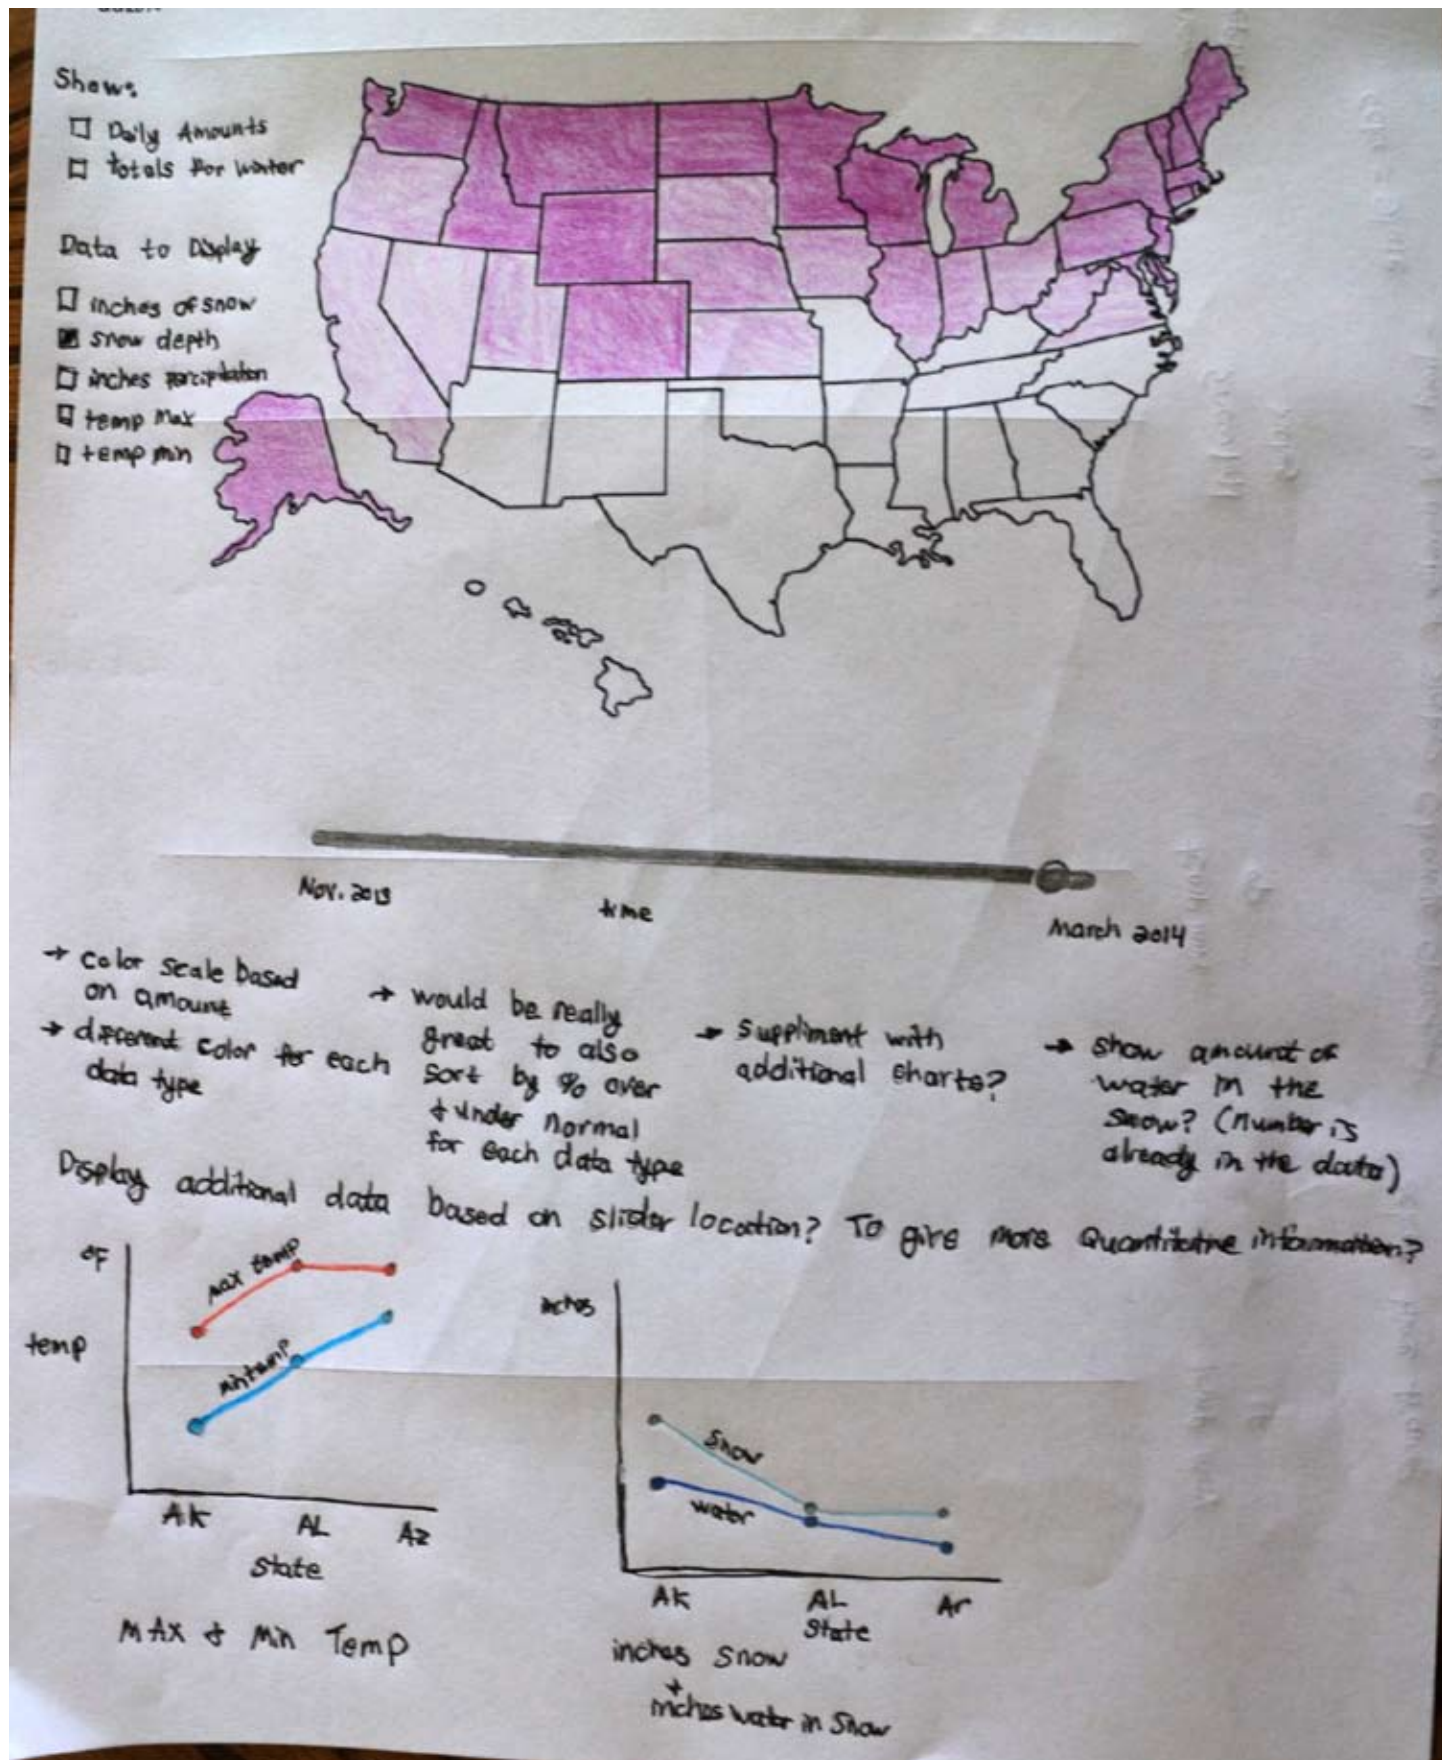 Show:
Daily Amounts
totals for winter
Data to Display
inches of snow
snow depth
inches percipitation
temp Max
temp min
Nov. 2013
time
March 2014
→ color scale based
on amount
→ different color for each
data type
→ would be really
great to also
sort by % over
+ under normal
for each data type
→ suppliment with
additional charts?
→ show amount of
water in the
snow? (number is
already in the data)
Display additional data based on slider location? To give more Quantitative information?
°F
temp
max temp
min temp
AK
AL
Az
State
MAX & Min Temp
inches
Snow
water
AK
AL
Ar
State
inches Snow
+
inches water in Snow